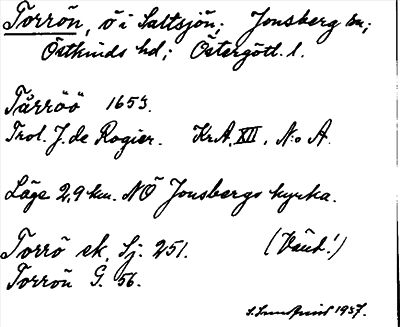 Torrön, ö i Saltsjön; Jonsberg sn;
Östkinds hd; Östergötl. l.
Tårröö 1653.
Trol. J. de Rogier. Kr.A. XII, N:o A.
Läge 2,9 km. NÖ Jonsbergs kyrka.
Torrö ek. Sj. 251. (Vänd!)
Torrön G. 56.
S. Lundqvist 1937.